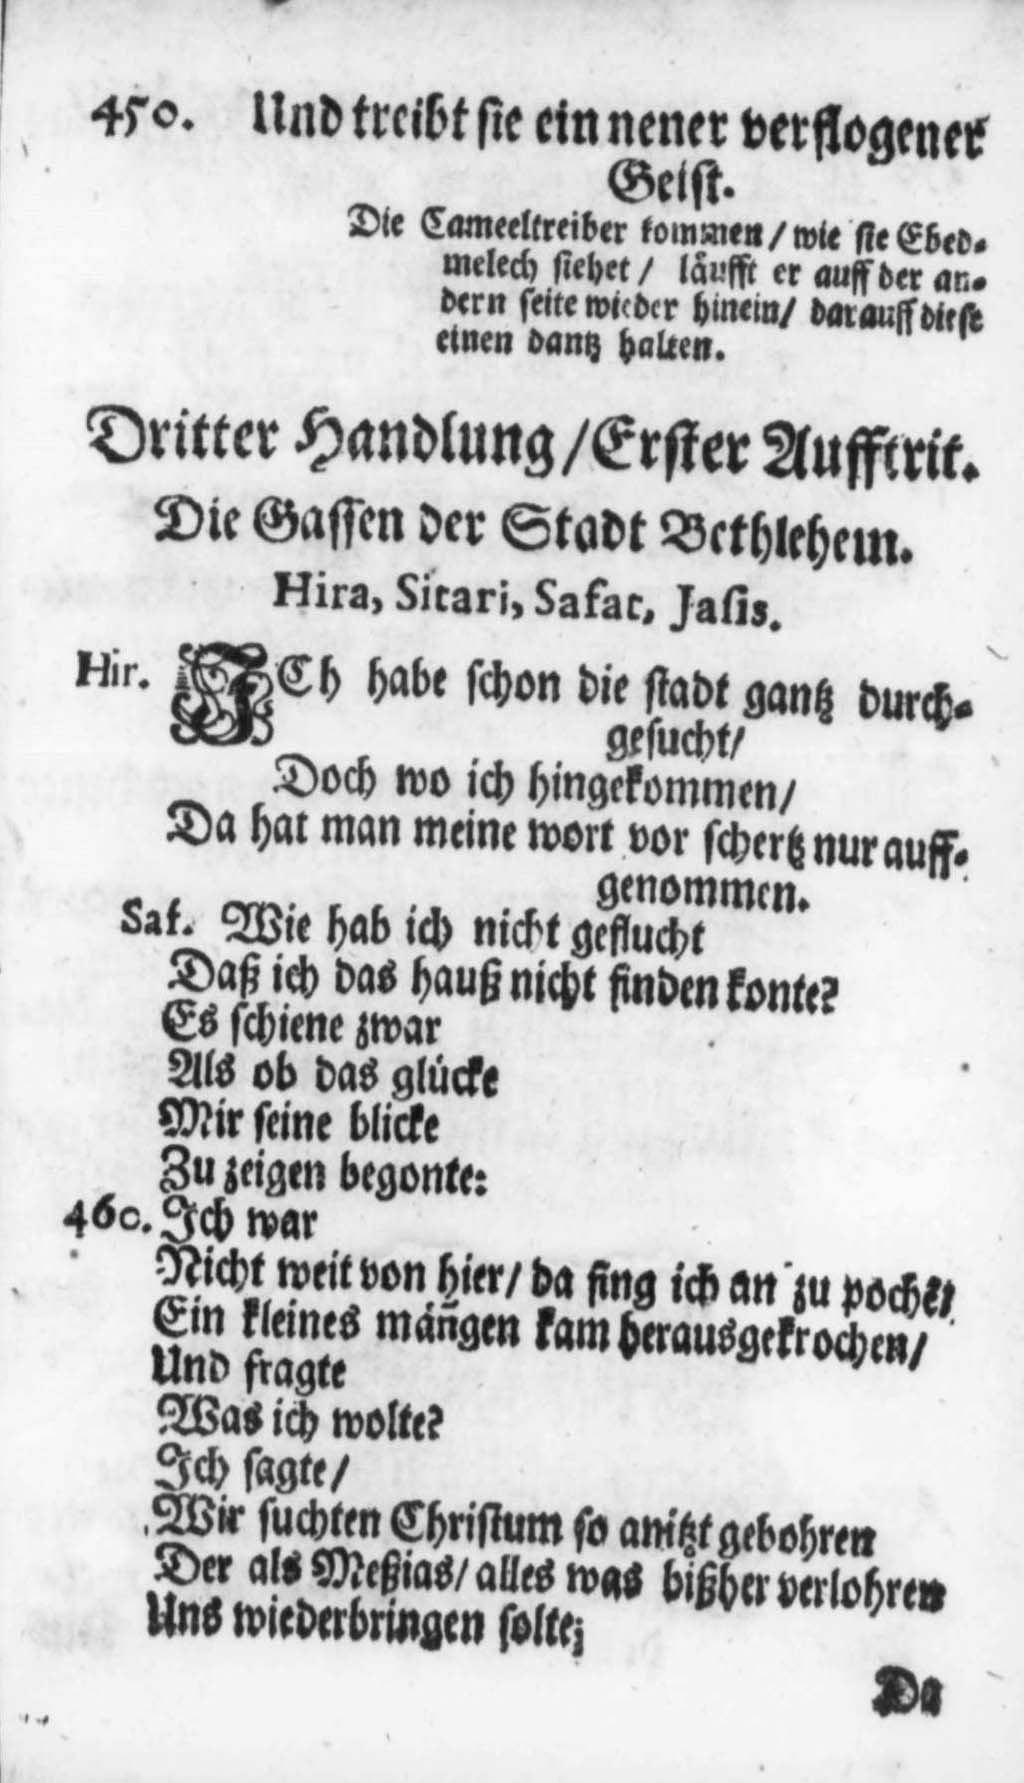 450. Und treibt sie ein nener verflogener
Geist.
Die Cameeltreiber kommen / wie sie Ebed-
melech siehet / läufft er auff der an-
dern seite wieder hinein / darauff diese
einen dantz halten.
Dritter Handlung / Erster Aufftrit.
Die Gassen der Stadt Bethlehem.
Hira, Sitari, Safat, Jasis.
Hir. ICh habe schon die stadt gantz durch-
gesucht /
Doch wo ich hingekommen /
Da hat man meine wort vor schertz nur auff-
genommen.
Saf. Wie hab ich nicht geflucht
Daß ich das hauß nicht finden konte?
Es schiene zwar
Als ob das glücke
Mir seine blicke
Zu zeigen begonte:
460. Ich war
Nicht weit von hier / da fing ich an zu pochē /
Ein kleines mäñgen kam herausgekrochen /
Und fragte
Was ich wolte?
Ich sagte /
Wir suchten Christum so anitzt gebohren
Der als Meßias / alles was bißher verlohren
Uns wiederbringen solte;
Da